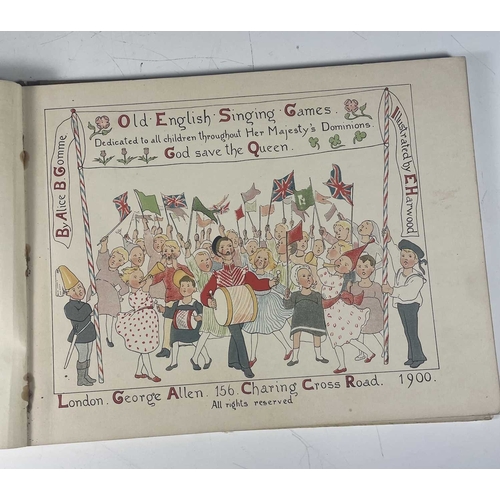 Old English Singing Games.
Dedicated to all children throughout Her Majesty's Dominions.
God save the Queen.
By Alice B Gomme
Illustrated by E Harwood
London. George Allen. 156. Charing Cross Road. 1900.
All rights reserved